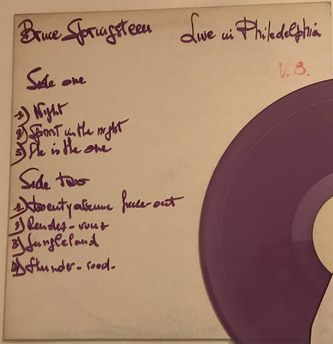 Bruce Springsteen Live in Philadelphia
V. B.
Side one
1) Night
2) Spirit in the night
3) She is the one
Side two
1) Twenty avenue freeze-out
2) Rendez-vous
3) Jungleland
4) Thunder-road.